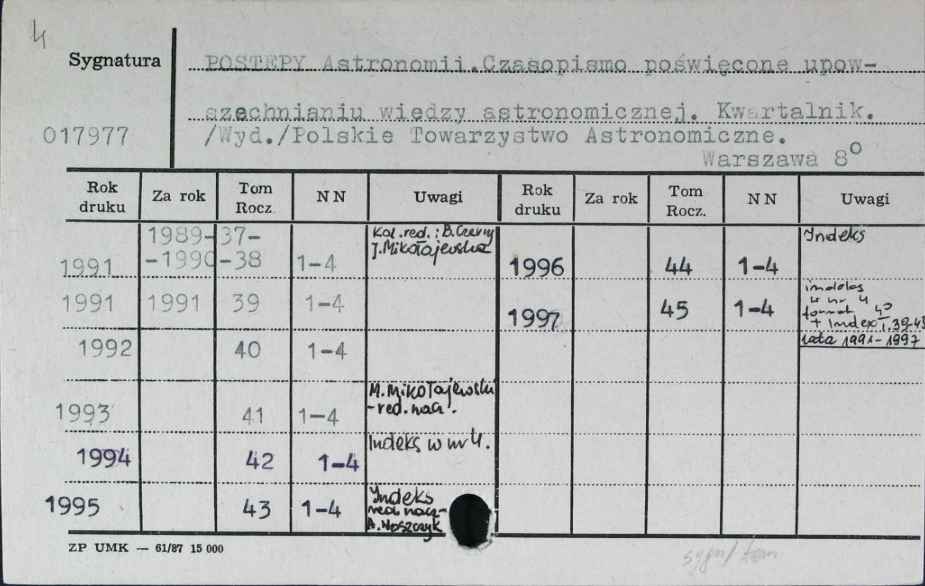 4
Sygnatura
POSTĘPY Astronomii.Czasopismo poświęcone upow-
szechnianiu wiedzy astronomicznej. Kwartalnik.
017977
/Wyd./Polskie Towarzystwo Astronomiczne.
Warszawa 8º
Rok druku Za rok Tom Rocz. NN Uwagi Rok druku Za rok Tom Rocz. NN Uwagi
1991 1989--1990 37--38 1-4 Kol.red.: B.Czerny J.Mikołajewska 1996 44 1-4 Indeks
1991 1991 39 1-4 1997 45 1-4 indeks w nr 4 format 4º + Index T.39-45 lata 1991-1997
1992 40 1-4
1993 41 1-4 M.Mikołajewski -red.nacz.
1994 42 1-4 Indeks w nr 4.
1995 43 1-4 Indeks red.nacz- A.Woszczyk
ZP UMK — 61/87 15 000